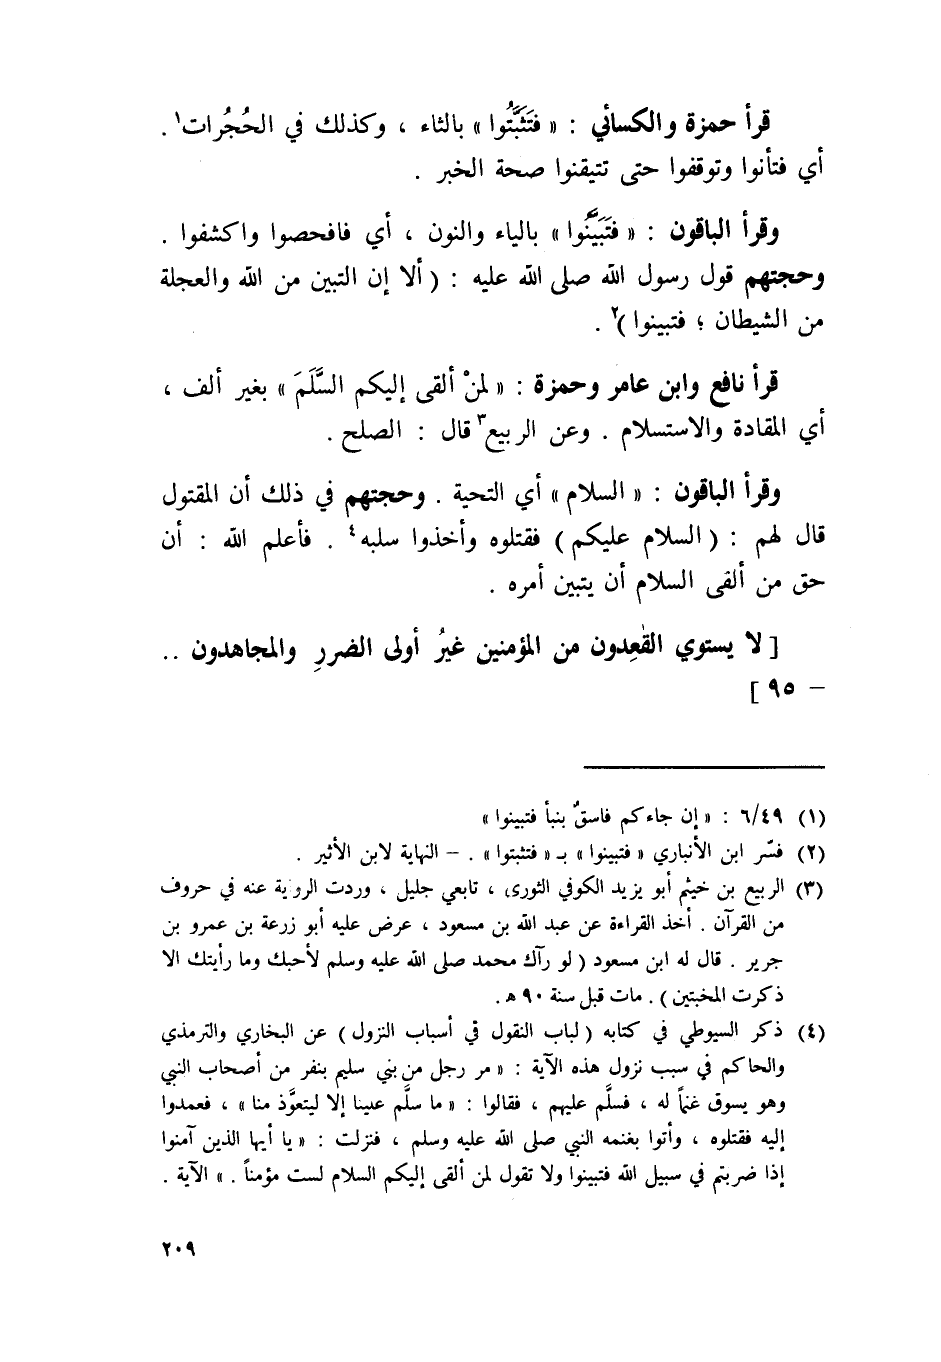 قرأ حمزة والكسائي : « فَتَثَبَّتُوا » بالثاء ، وكذلك في الحُجُرات١ .
أي فتأنوا وتوقفوا حتى تتيقنوا صحة الخبر .
وقرأ الباقون : « فَتَبَيَّنُوا » بالياء والنون ، أي فافحصوا واكشفوا .
وحجتهم قول رسول الله صلى الله عليه : ( ألا إن التبين من الله والعجلة
من الشيطان ؛ فتبينوا )٢ .
قرأ نافع وابن عامر وحمزة : « لمنْ ألقى إليكم السَّلَمَ » بغير ألف ،
أي المقادة والاستسلام . وعن الربيع٣ قال : الصلح .
وقرأ الباقون : « السلام » أي التحية . وحجتهم في ذلك أن المقتول
قال لهم : ( السلام عليكم ) فقتلوه وأخذوا سلبه٤ . فأعلم الله : أن
حق من ألقى السلام أن يتبين أمره .
[ لا يستوي القٰعِدون من المؤمنين غيرُ أولى الضررِ والمجاهدون ..
– ٩٥ ]
(١) ٦/٤٩ : « إن جاءكم فاسقٌ بنبأ فتبينوا »
(٢) فسّر ابن الأنباري « فتبينوا » بـ « فتثبتوا » . – النهاية لابن الأثير .
(٣) الربيع بن خيثم أبو يزيد الكوفي الثورى ، تابعي جليل ، وردت الرواية عنه في حروف
من القرآن . أخذ القراءة عن عبد الله بن مسعود ، عرض عليه أبو زرعة بن عمرو بن
جرير . قال له ابن مسعود ( لو رآك محمد صلى الله عليه وسلم لأحبك وما رأيتك الا
ذكرت المخبتين ) . مات قبل سنة ٩٠ هـ .
(٤) ذكر السيوطي في كتابه ( لباب النقول في أسباب النزول ) عن البخاري والترمذي
والحاكم في سبب نزول هذه الآية : « مر رجل من بني سليم بنفر من أصحاب النبي
وهو يسوق غنماً له ، فسلَّم عليهم ، فقالوا : « ما سلَّم علينا إلا ليتعوَّذ منا » ، فعمدوا
إليه فقتلوه ، وأتوا بغنمه النبي صلى الله عليه وسلم ، فنزلت : « يا أيها الذين آمنوا
إذا ضربتم في سبيل الله فتبينوا ولا تقول لمن ألقى إليكم السلام لست مؤمناً . » الآية .
٢٠٩